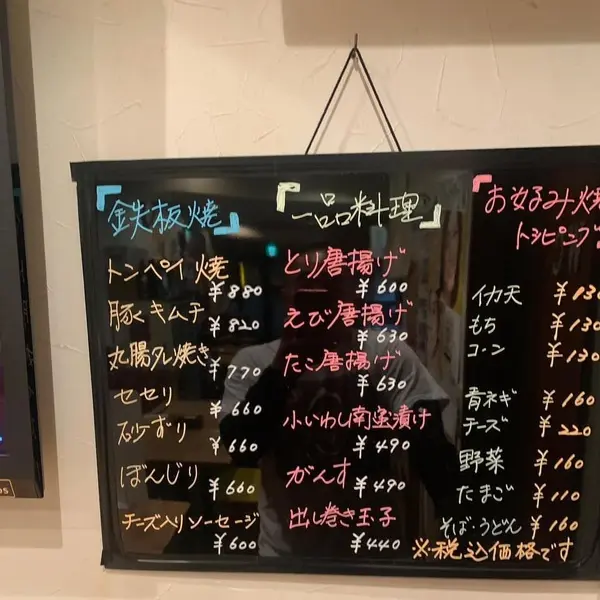 「鉄板焼」
トンペイ焼
¥880
豚キムチ
¥820
丸腸タレ焼き
¥770
セセリ
¥660
砂ずり
¥660
ぼんじり
¥660
チーズ入りソーセージ
¥600
「一品料理」
とり唐揚げ
¥600
えび唐揚げ
¥630
たこ唐揚げ
¥630
小いわし南蛮漬け
¥490
がんす
¥490
出し巻き玉子
¥440
「お好み焼
トッピング
イカ天 ¥130
もち ¥130
コーン ¥130
青ネギ ¥160
チーズ ¥220
野菜 ¥160
たまご ¥110
そば・うどん ¥160
※税込価格です